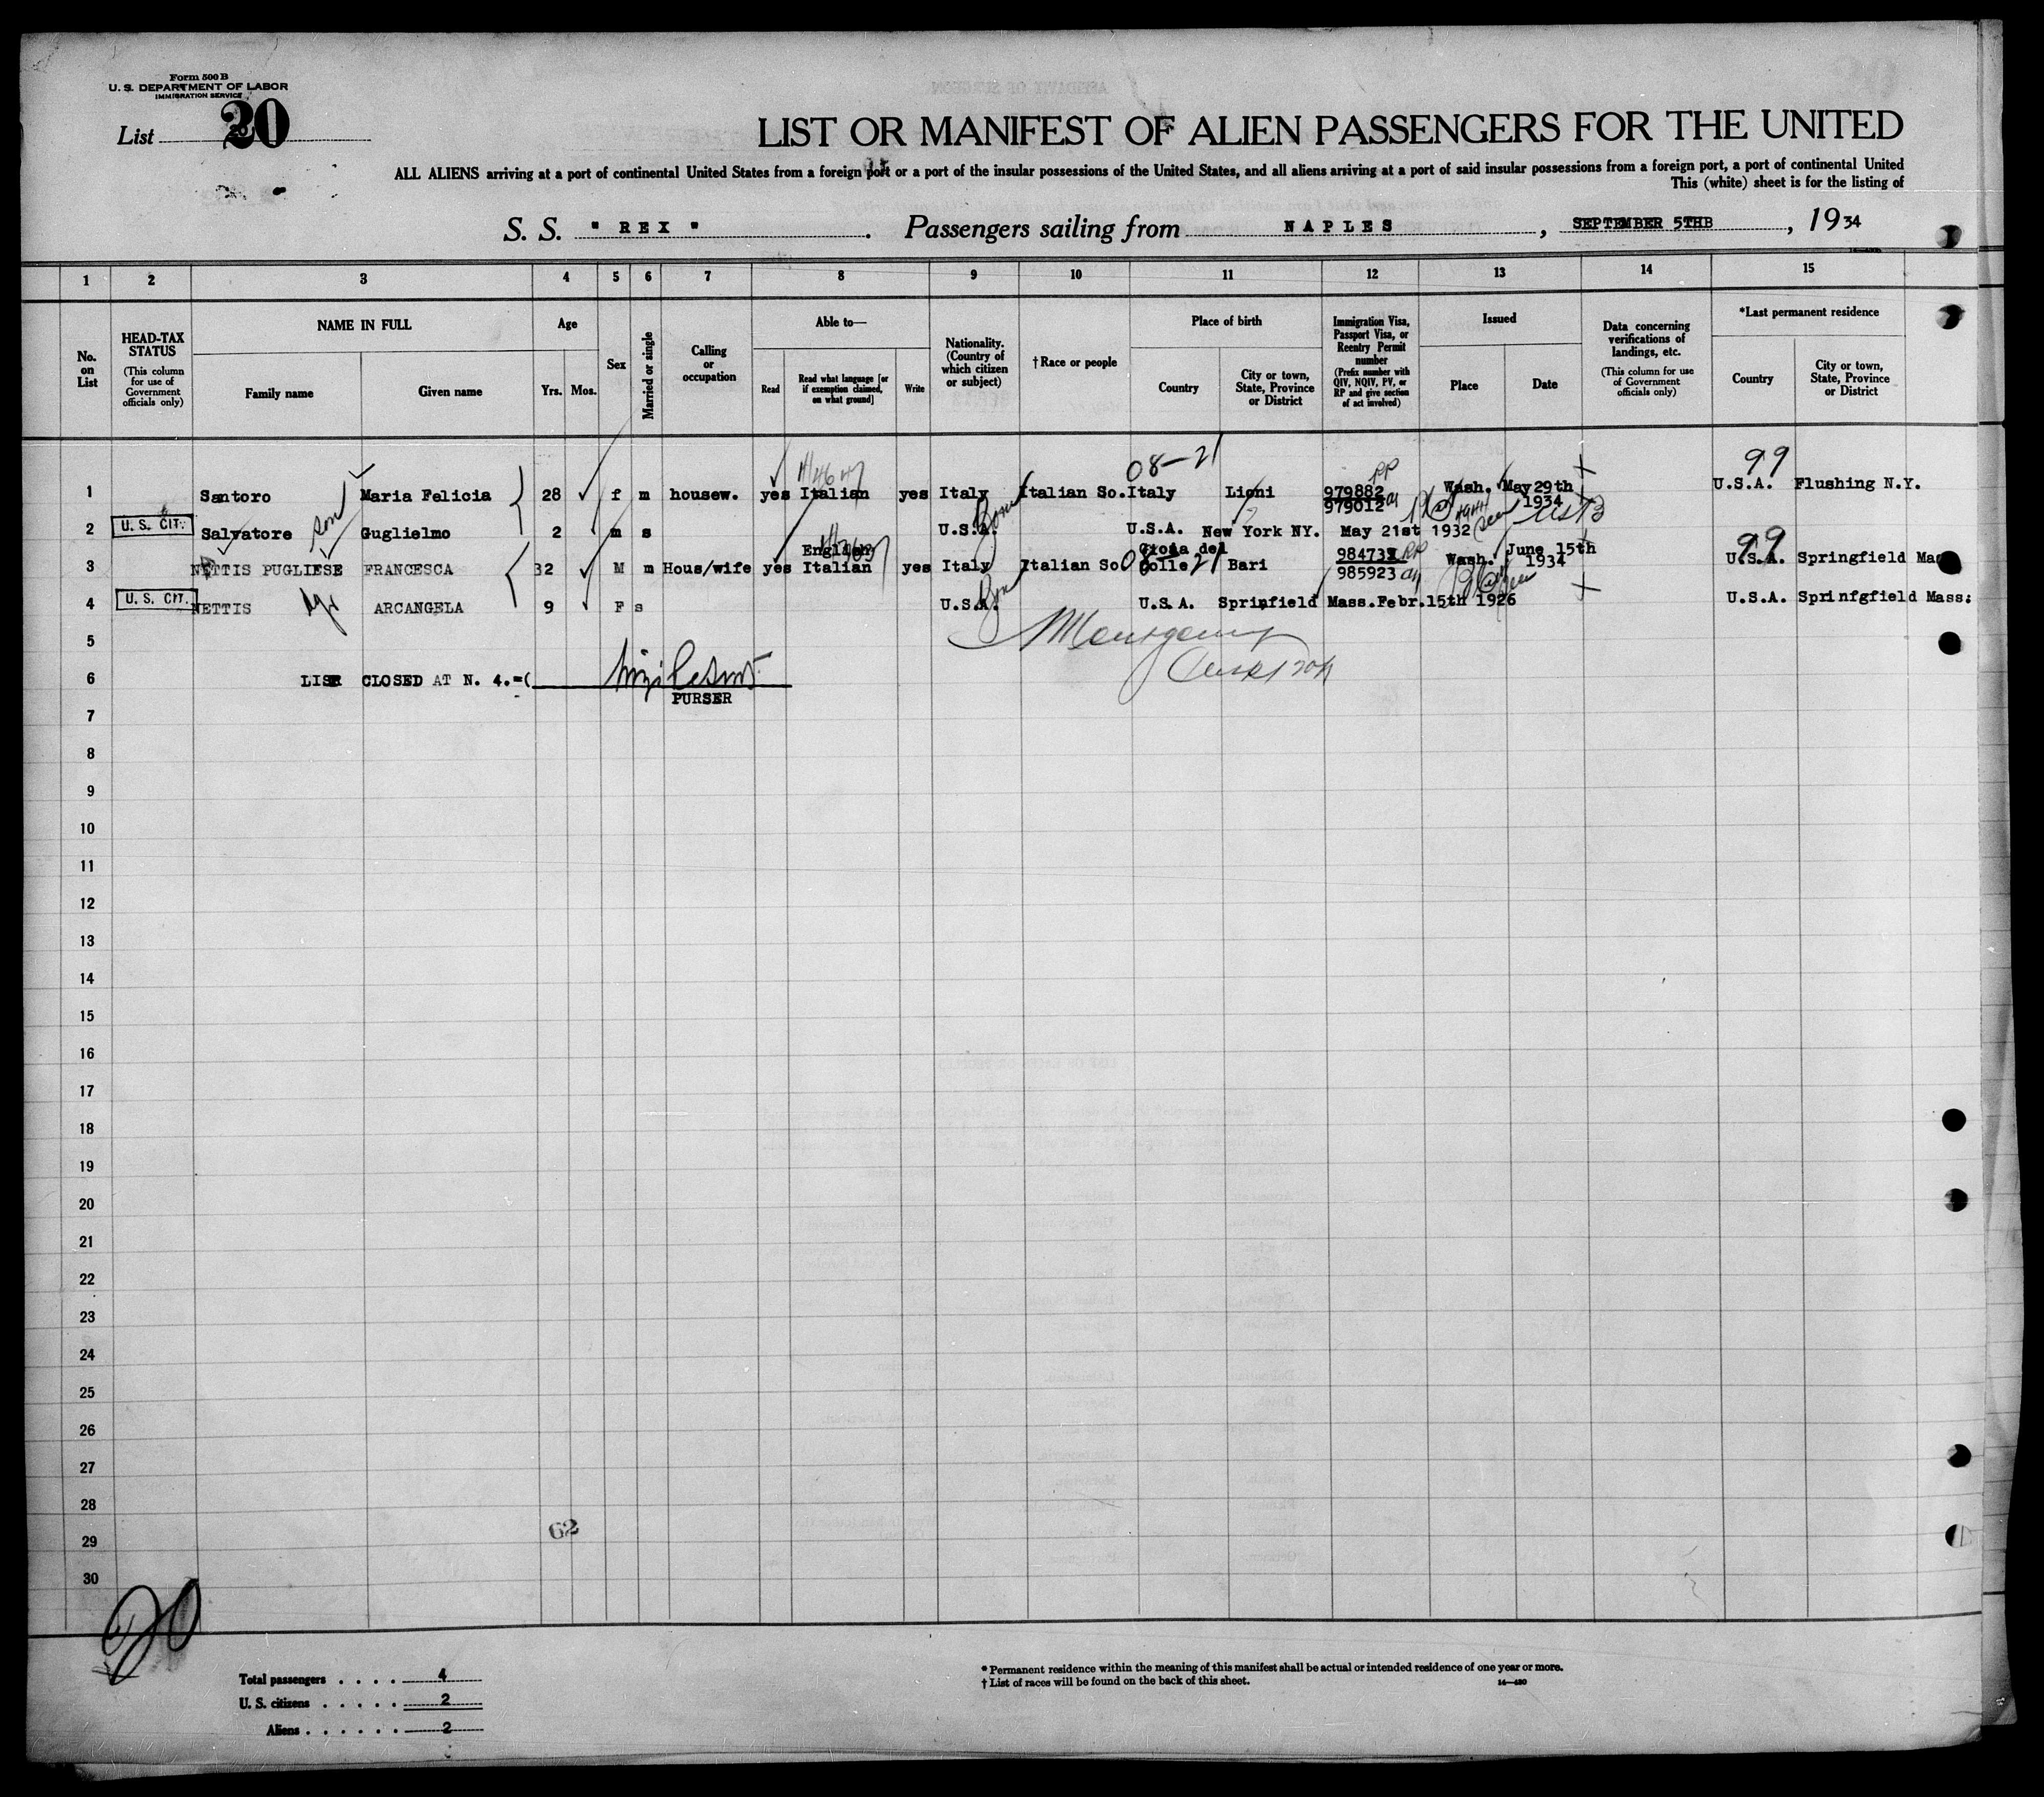 Form 500 B
U. S. DEPARTMENT OF LABOR
IMMIGRATION SERVICE
List 20
LIST OR MANIFEST OF ALIEN PASSENGERS FOR THE UNITED
ALL ALIENS arriving at a port of continental United States from a foreign port or a port of the insular possessions of the United States, and all aliens arriving at a port of said insular possessions from a foreign port, a port of continental United
This (white) sheet is for the listing of
S. S. " REX " . Passengers sailing from NAPLES , SEPTEMBER 5THB , 1934
1 2 3 4 5 6 7 8 9 10 11 12 13 14 15
No. on List
HEAD-TAX STATUS (This column for use of Government officials only)
NAME IN FULL
Family name Given name
Age
Yrs. Mos.
Sex
Married or single
Calling or occupation
Able to—
Read Read what language [or if exemption claimed, on what ground] Write
Nationality. (Country of which citizen or subject)
† Race or people
Place of birth
Country City or town, State, Province or District
Immigration Visa, Passport Visa, or Reentry Permit number (Prefix number with QIV, NQIV, PV, or RP and give section of act involved)
Issued
Place Date
Data concerning verifications of landings, etc. (This column for use of Government officials only)
*Last permanent residence
Country City or town, State, Province or District
08-21 RP 99
1 Santoro Maria Felicia 28 f m housew. yes Italian yes Italy Italian So. Italy Lioni 979882 979012 Wash. May 29th 1934 U.S.A. Flushing N.Y.
2 U. S. CIT. Salvatore son Guglielmo 2 m s U.S.A. U.S.A. New York NY. May 21st 1932 USB
English Gioia del RP June 15th 99
3 NETTIS PUGLIESE FRANCESCA 32 M m Hous/wife yes Italian yes Italy Italian So Colle Bari 984731 985923 Wash. 1934 U.S.A. Springfield Mass
4 U. S. CIT. NETTIS ARCANGELA 9 F s U.S.A. U.S.A. Sprinfield Mass. Febr.15th 1926 U.S.A. Sprinfgfield Mass.
5
6 LISR CLOSED AT N. 4.=(
PURSER
7
8
9
10
11
12
13
14
15
16
17
18
19
20
21
22
23
24
25
26
27
28
62
29
30
20
Total passengers . . . . 4
U. S. citizens . . . . . 2
Aliens . . . . . . 2
* Permanent residence within the meaning of this manifest shall be actual or intended residence of one year or more.
† List of races will be found on the back of this sheet.
14—480